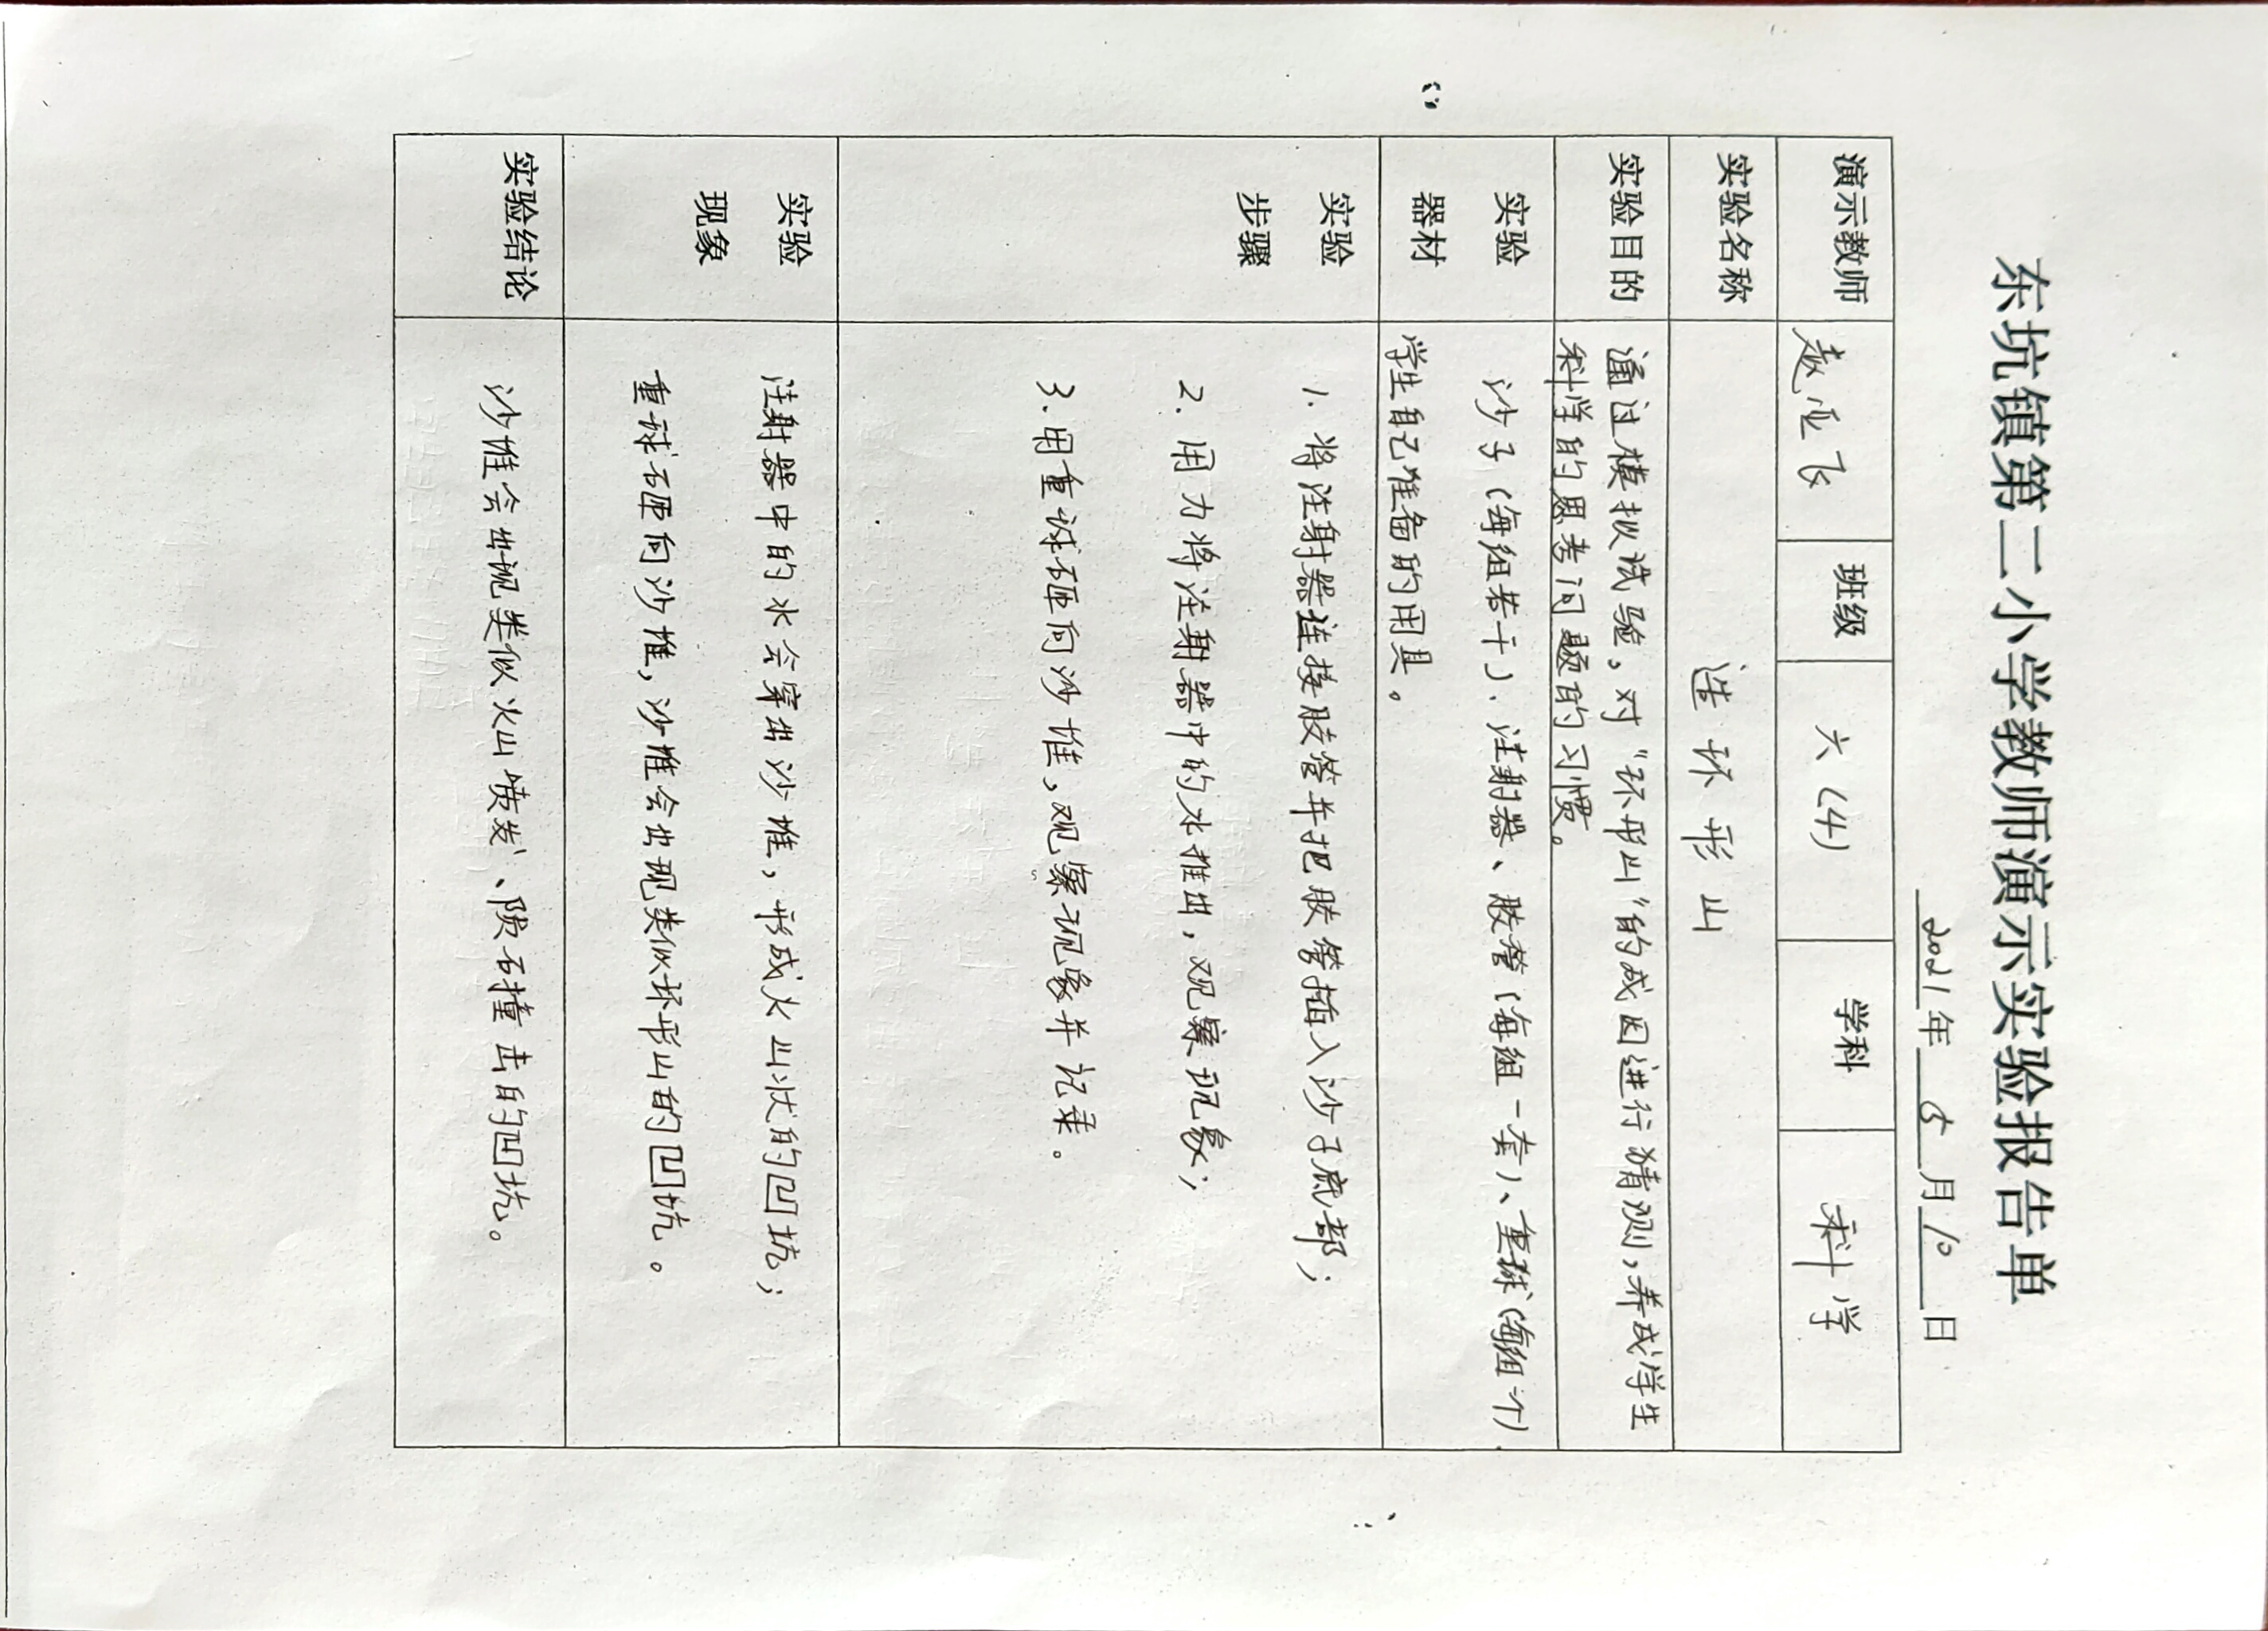 东坑镇第二小学教师演示实验报告单
2021年 5 月 10 日
演示教师 赵亚飞 班级 六(4) 学科 科学
实验名称 造环形山
实验目的 通过模拟试验，对“环形山”的成因进行猜测，养成学生
科学的思考问题的习惯。
实验 沙子(每组若干)、注射器、胶管(每组一套)、重球(每组一个)、
器材 学生自己准备的用具。
实验 1. 将注射器连接胶管并把胶管插入沙子底部；
步骤
2. 用力将注射器中的水推出，观察现象；
3. 用重球砸向沙堆，观察现象并记录。
实验 注射器中的水会穿出沙堆，形成火山状的凹坑；
现象
重球砸向沙堆，沙堆会出现类似环形山的凹坑。
实验结论 沙堆会出现类似火山喷发、陨石撞击的凹坑。